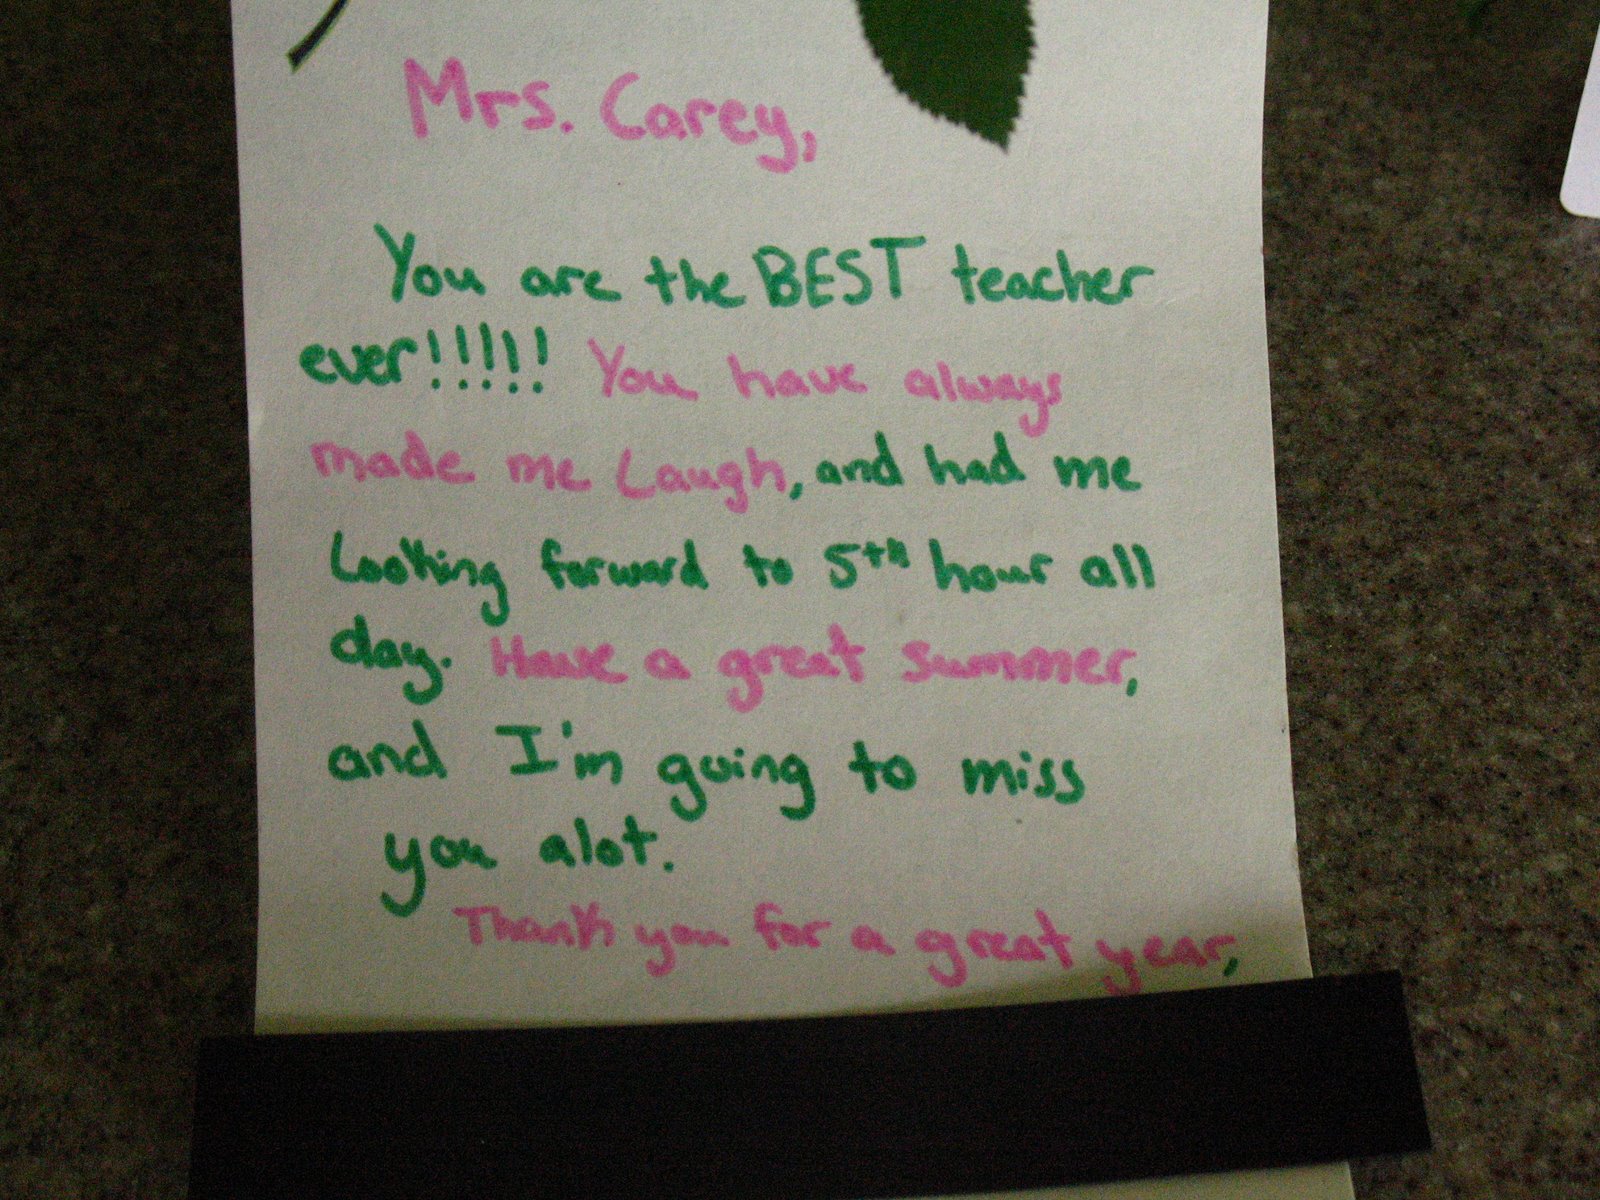 Mrs. Carey,
You are the BEST teacher
ever!!!!! You have always
made me Laugh, and had me
Looking forward to 5th hour all
day. Have a great summer,
and I'm going to miss
you alot.
Thank you for a great year,